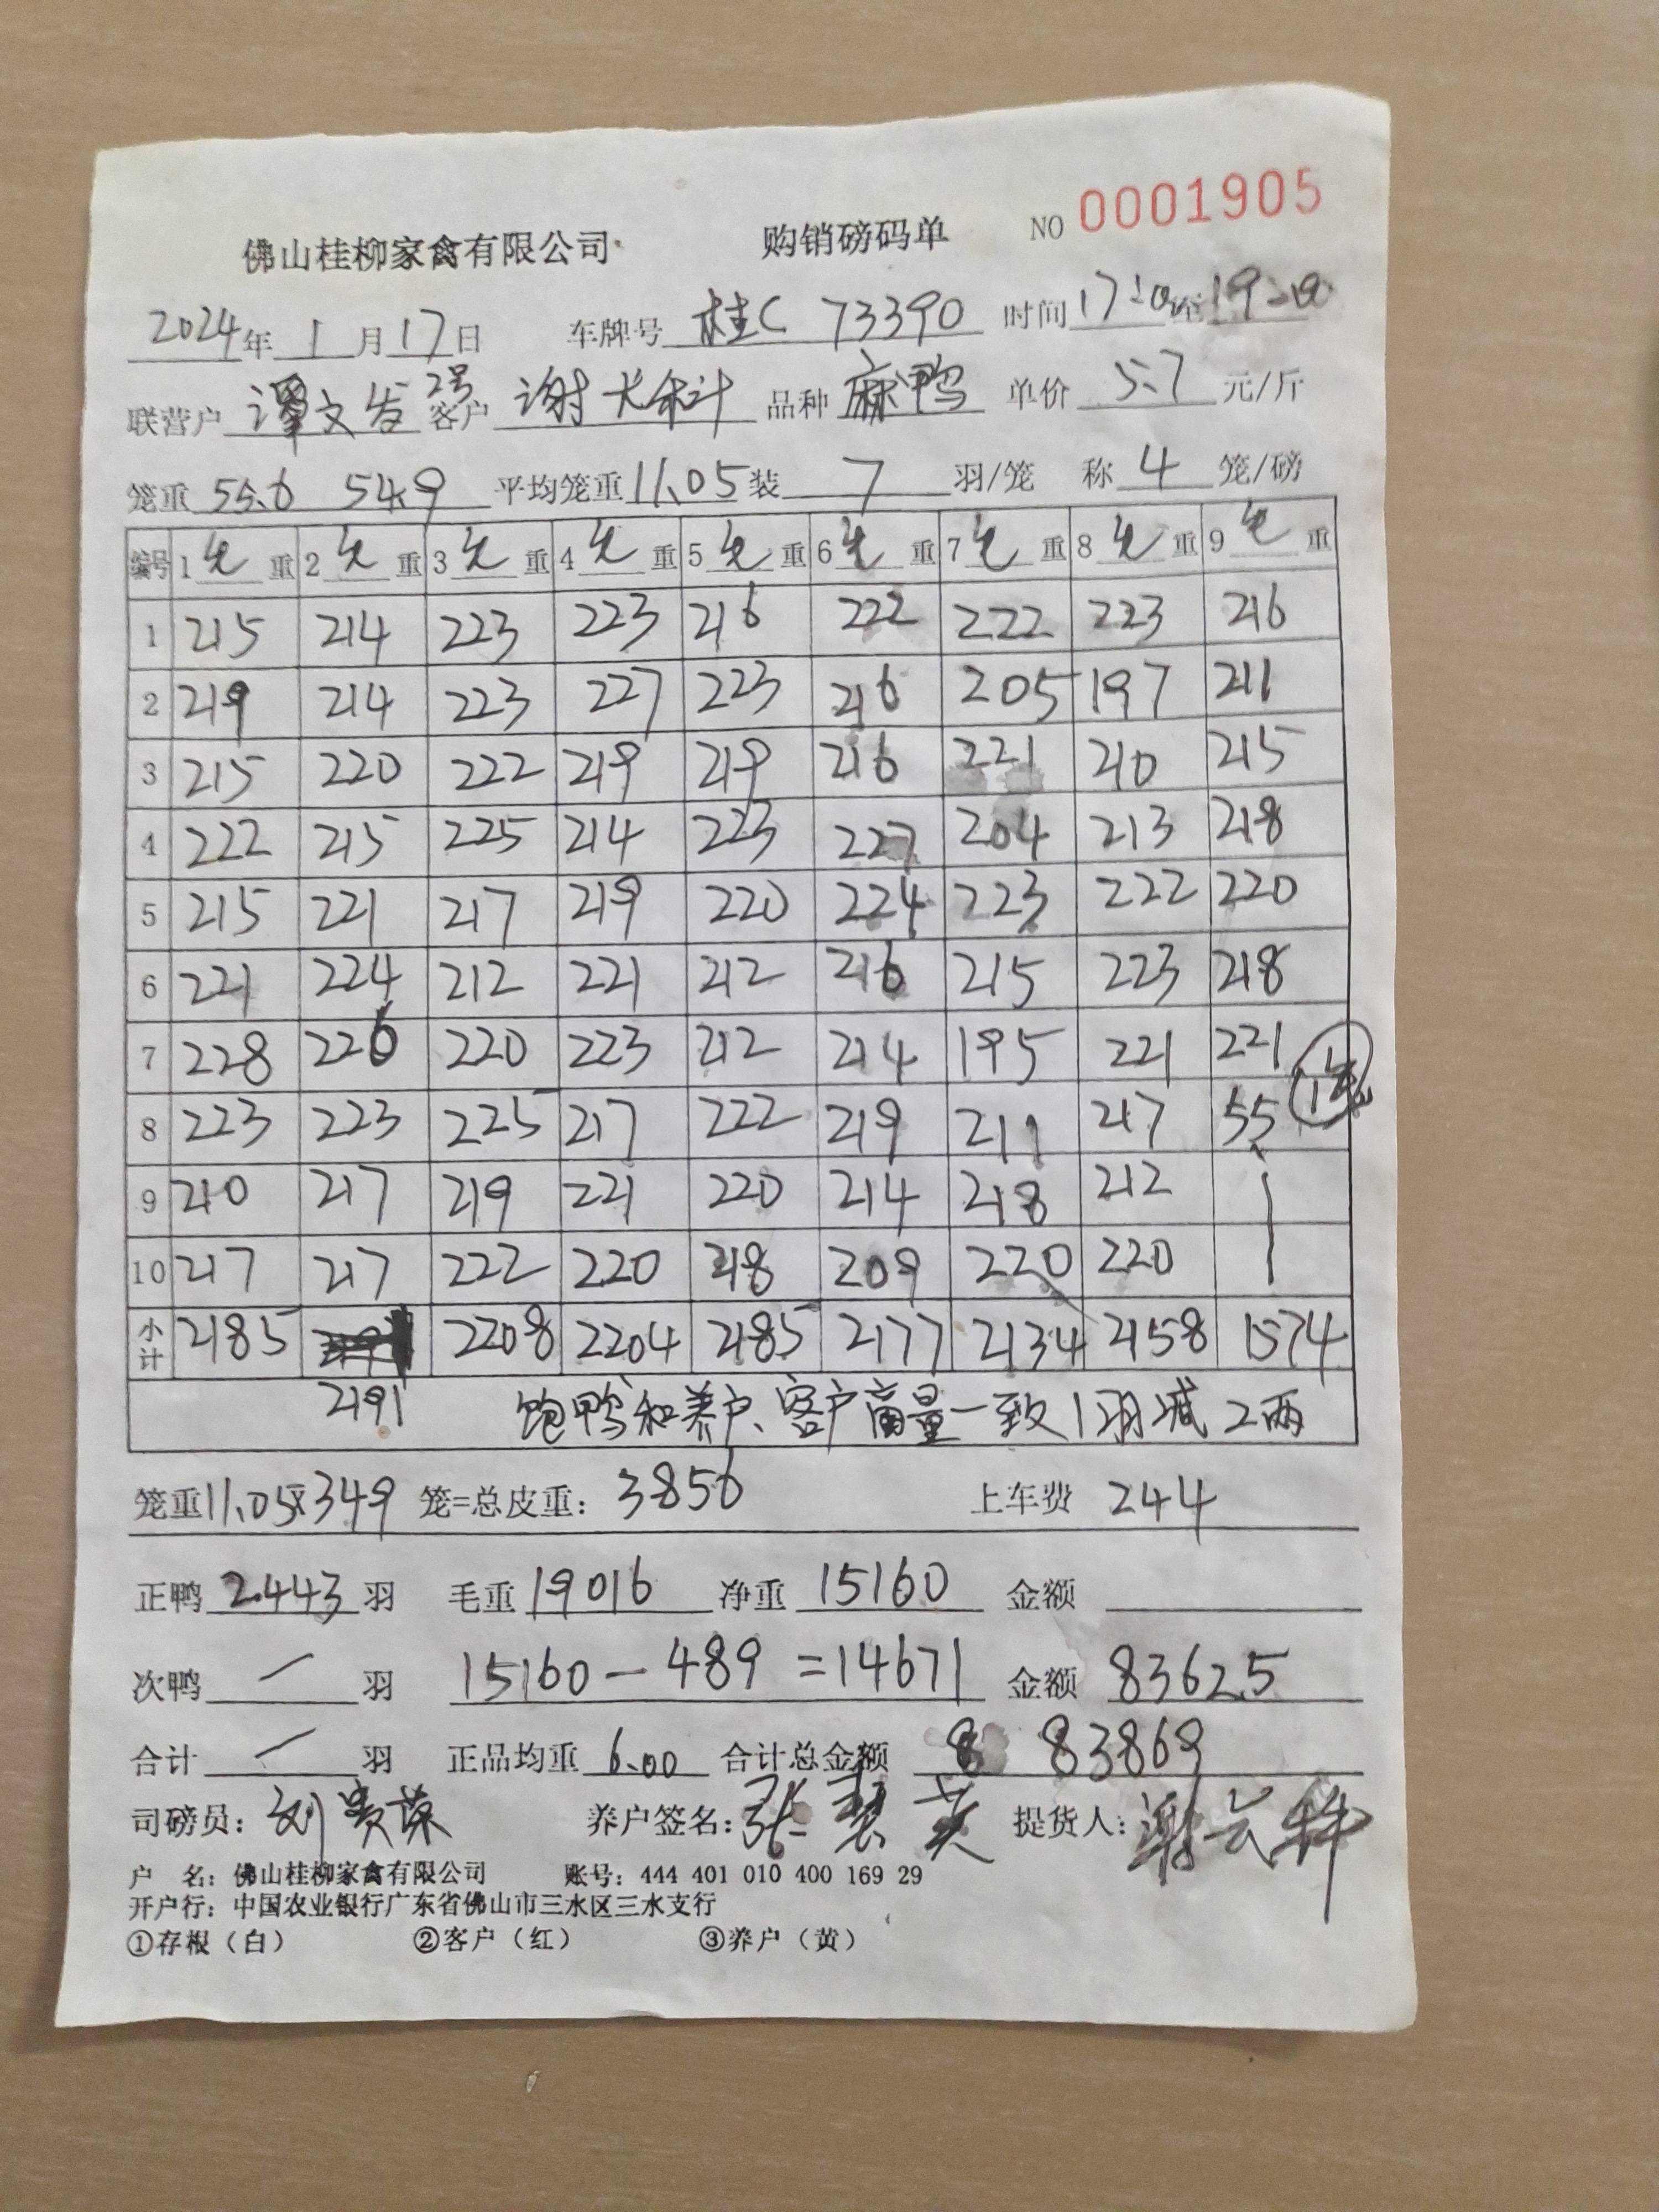 佛山桂柳家禽有限公司 购销磅码单 NO 0001905
2024年 1月17日 车牌号 桂C 73390 时间 17:20至19:20
联营户 谭文发 2号 客户 谢长 品种 麻鸭 单价 5.7 元/斤
笼重 55.6 54.9 平均笼重 11.05 装 7 羽/笼 称 4 笼/磅
编号 1 毛 重 2 毛 重 3 毛 重 4 毛 重 5 毛 重 6 毛 重 7 毛 重 8 毛 重 9 毛 重
1 215 214 223 223 216 222 222 223 216
2 219 214 223 227 223 216 205 197 211
3 215 220 222 219 219 216 221 210 215
4 222 215 225 214 223 227 204 213 218
5 215 221 217 219 220 224 223 222 220
6 221 224 212 221 212 216 215 223 218
7 228 226 220 223 212 214 195 221 221
8 223 223 225 217 222 219 211 217 55 1笼
9 210 217 219 221 220 214 218 212
10 217 217 222 220 218 209 220 220
小计 2185 2208 2204 2185 2177 2134 2158 1574
2191 饱鸭和养户、客户商量一致1羽减2两
笼重11.05×349 笼=总皮重：3856 上车费 244
正鸭 2443 羽 毛重 19016 净重 15160 金额
次鸭 — 羽 15160-489=14671 金额 83625
合计 — 羽 正品均重 6.00 合计总金额 8 83869
司磅员：刘贵荣 养户签名：张慧英 提货人：谢
户 名：佛山桂柳家禽有限公司 账号：444 401 010 400 169 29
开户行：中国农业银行广东省佛山市三水区三水支行
①存根（白） ②客户（红） ③养户（黄）